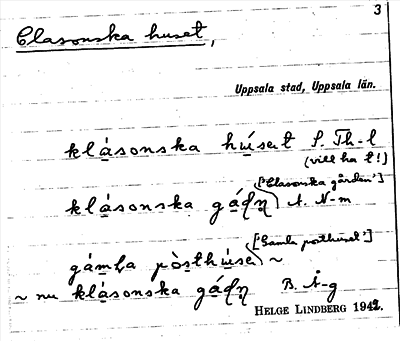 3
Clasonska huset,
Uppsala stad, Uppsala län.
klásonska hú́set S. Th-l
(vill ha t!)
['Clasonska gården']
klásonska gáɖn̥ A. N-m
['Gamla posthuset']
gámla pòsthúse ~
~ nu klásonska gáɖn̥ B. Å-g
HELGE LINDBERG 1942.